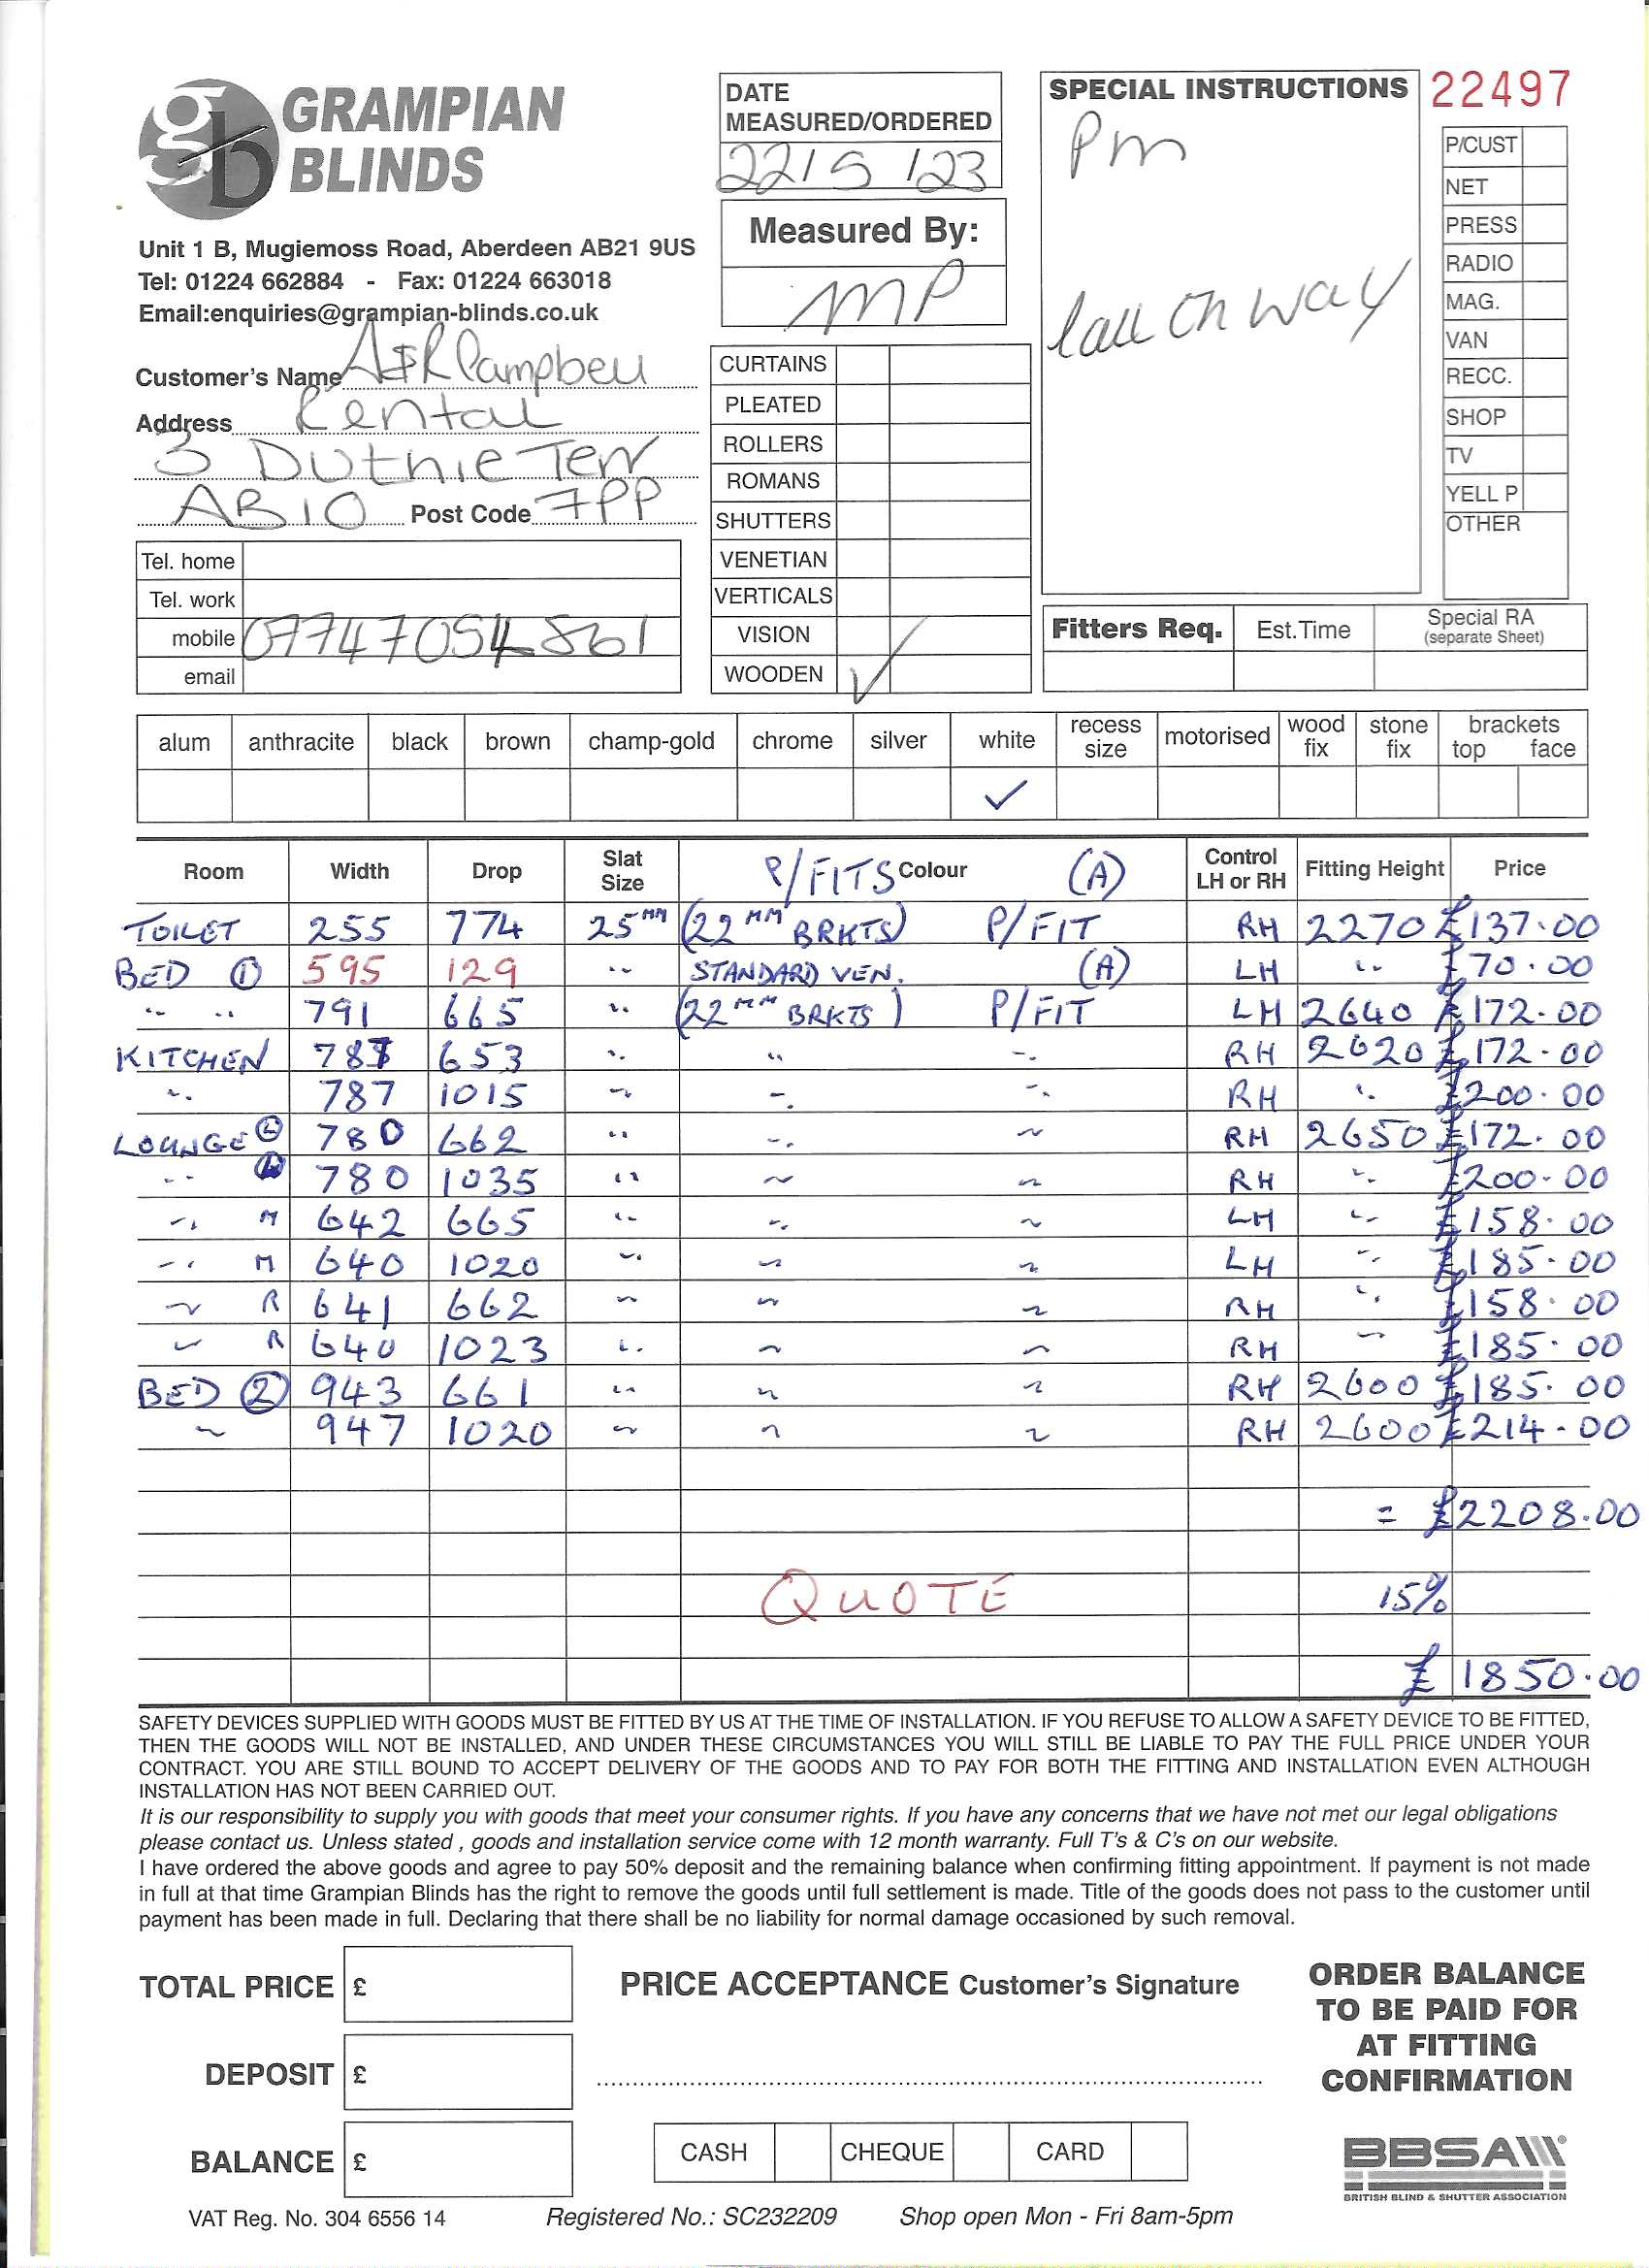 GRAMPIAN
BLINDS
Unit 1 B, Mugiemoss Road, Aberdeen AB21 9US
Tel: 01224 662884 - Fax: 01224 663018
Email:enquiries@grampian-blinds.co.uk
DATE
MEASURED/ORDERED
22/5/23
Measured By:
MP
SPECIAL INSTRUCTIONS
Pm
Call on way
22497
P/CUST
NET
PRESS
RADIO
MAG.
VAN
RECC.
SHOP
TV
YELL P
OTHER
Customer's Name A&R Campbell
Address Rental
3 Duthie Terr
AB10 Post Code 7PP
Tel. home
Tel. work
mobile
email
CURTAINS
PLEATED
ROLLERS
ROMANS
SHUTTERS
VENETIAN
VERTICALS
VISION
WOODEN ✓
Fitters Req. Est.Time Special RA
(separate Sheet)
alum anthracite black brown champ-gold chrome silver white recess size motorised wood fix stone fix brackets top face
✓
Room Width Drop Slat Size P/FITS Colour (A) Control LH or RH Fitting Height Price
TOILET 255 774 25MM (22MM BRKTS) P/FIT RH 2270 £137.00
BED ① 595 129 " STANDARD VEN. (A) LH " £70.00
" " 791 665 " (22MM BRKTS) P/FIT LH 2640 £172.00
KITCHEN 787 653 " " " RH 2620 £172.00
" 787 1015 " " " RH " £200.00
LOUNGE Ⓛ 780 662 " " " RH 2650 £172.00
" Ⓛ 780 1035 " " " RH " £200.00
" M 642 665 " " " LH " £158.00
" M 640 1020 " " " LH " £185.00
" R 641 662 " " " RH " £158.00
" R 640 1023 " " " RH " £185.00
BED ② 943 661 " " " RH 2600 £185.00
" 947 1020 " " " RH 2600 £214.00
= £2208.00
QUOTE 15%
£1850.00
SAFETY DEVICES SUPPLIED WITH GOODS MUST BE FITTED BY US AT THE TIME OF INSTALLATION. IF YOU REFUSE TO ALLOW A SAFETY DEVICE TO BE FITTED,
THEN THE GOODS WILL NOT BE INSTALLED, AND UNDER THESE CIRCUMSTANCES YOU WILL STILL BE LIABLE TO PAY THE FULL PRICE UNDER YOUR
CONTRACT. YOU ARE STILL BOUND TO ACCEPT DELIVERY OF THE GOODS AND TO PAY FOR BOTH THE FITTING AND INSTALLATION EVEN ALTHOUGH
INSTALLATION HAS NOT BEEN CARRIED OUT.
It is our responsibility to supply you with goods that meet your consumer rights. If you have any concerns that we have not met our legal obligations
please contact us. Unless stated , goods and installation service come with 12 month warranty. Full T's & C's on our website.
I have ordered the above goods and agree to pay 50% deposit and the remaining balance when confirming fitting appointment. If payment is not made
in full at that time Grampian Blinds has the right to remove the goods until full settlement is made. Title of the goods does not pass to the customer until
payment has been made in full. Declaring that there shall be no liability for normal damage occasioned by such removal.
TOTAL PRICE £
DEPOSIT £
BALANCE £
PRICE ACCEPTANCE Customer's Signature
CASH CHEQUE CARD
ORDER BALANCE
TO BE PAID FOR
AT FITTING
CONFIRMATION
BBSA
BRITISH BLIND & SHUTTER ASSOCIATION
VAT Reg. No. 304 6556 14 Registered No.: SC232209 Shop open Mon - Fri 8am-5pm